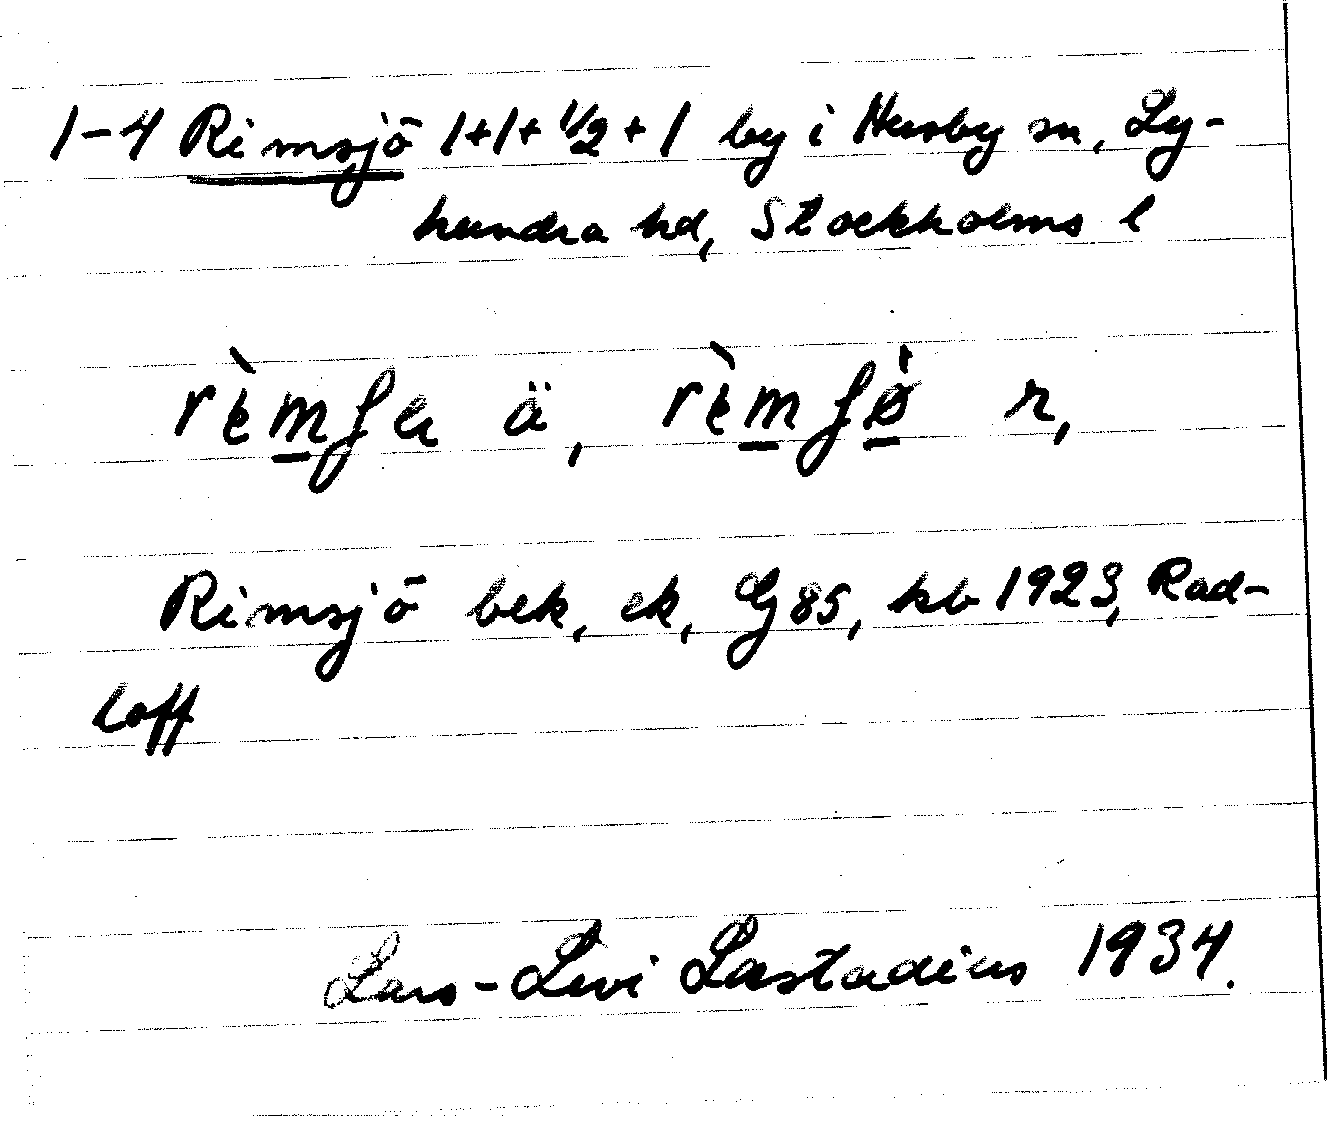 1-4 Rimsjö 1+1+½+1 by i Husby sn, Ly-
hundra hd, Stockholms l
ä, r,
Rimsjö bek, ek, GJ 85, kb 1923, Rad-
loff
Lars-Levi Læstadius 1934.